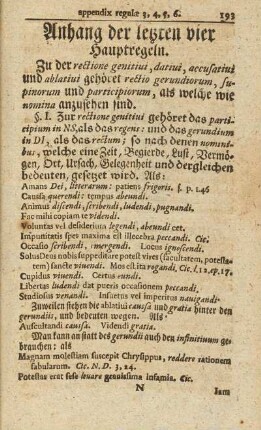 appendix regulæ 3, 4, 5, 6. 193
Anhang der letzten vier
Hauptregeln.
Zu der rectione genitivi, dativi, accusativi
und ablativi gehöret rectio gerundiorum, su-
pinorum und participiorum, als welche wie
nomina anzusehen sind.
§. I. Zur rectione genitivi gehöret das parti-
cipium in NS, als das regens: und das gerundium
in DI, als das rectum; so nach denen nomini-
bus, welche eine Zeit, Begierde, Lust, Vermö-
gen, Ort, Ursach, Gelegenheit und dergleichen
bedeuten, gesetzt wird. Als:
Amans Dei, litterarum: patiens frigoris. §. p. 146
Causa querendi: tempus abeundi.
Animus discendi, scribendi, ludendi, pugnandi.
Fac mihi copiam te videndi.
Voluntas vel desiderium legendi, abeundi cet.
Impunitatis spes maxima est illecebra peccandi. Cic.
Occasio scribendi, mergendi. Lucem ignescendi.
Solus Deus nobis suppeditare potest vires (facultatem, potesta-
tem) sancte vivendi. Mos est ita rogandi, Cic. l. 12. ep. 17.
Cupidus vivendi. Certus eundi.
Libertas ludendi dat pueris occasionem peccandi.
Studiosus venandi. Insuetus vel imperitus navigandi.
Zuweilen stehen die ablativi causa und gratia hinter den
gerundiis, und bedeuten wegen. Als
Auscultandi causa. Videndi gratia.
Man kann an statt des gerundii auch den infinitivum ge-
brauchen: als
Magnam molestiam suscepit Chrysippus, reddere rationem
fabularum. Cic. N. D. 3, 24.
Potestas erat sese levare gravissima infamia. Cic.
N Iam